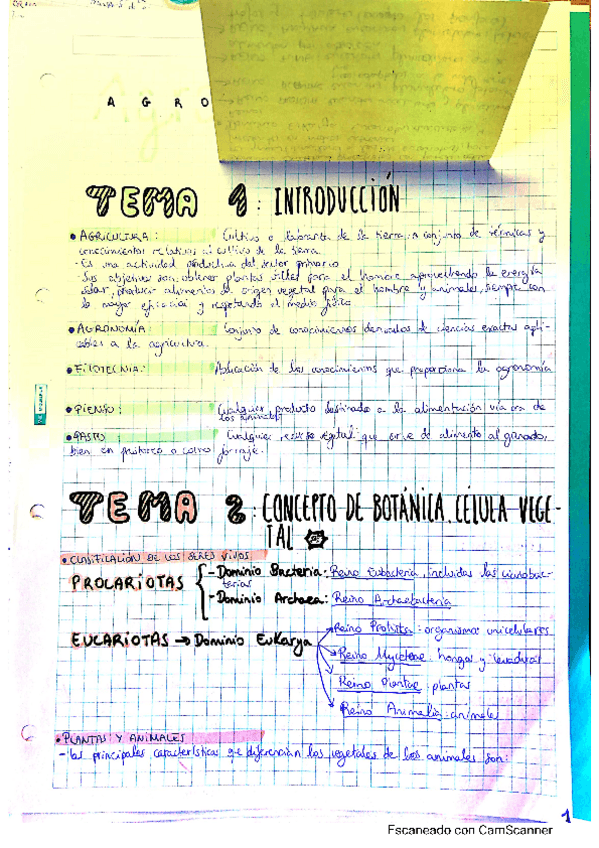 A G R O
TEMA 1: INTRODUCCIÓN
• AGRICULTURA: Cultivo o labranza de la tierra o conjunto de técnicas y
conocimientos relativos al cultivo de la tierra
- Es una actividad productiva del sector primario
- Sus objetivos son obtener plantas útiles para el hombre aprovechando la energía
solar, producir alimentos de origen vegetal para el hombre y animales, siempre con
la mayor eficacia y respetando el medio físico
• AGRONOMÍA: Conjunto de conocimientos derivados de ciencias exactas apli-
cables a la agricultura.
• FITOTECNIA: Aplicación de los conocimientos que proporciona la agronomía
• PIENSO: Cualquier producto destinado a la alimentación vía oral de
los animales
• PASTO: Cualquier recurso vegetal que sirve de alimento al ganado,
bien en pastoreo o como forraje.
TEMA 2: CONCEPTO DE BOTÁNICA. CÉLULA VEGE-
TAL
• CLASIFICACIÓN DE LOS SERES VIVOS
PROCARIOTAS - Dominio Bacteria: Reino Eubacteria, incluidas las cianobac-
terias
- Dominio Archaea: Reino Archaebacteria
EUCARIOTAS → Dominio Eukarya
Reino Protista: organismos unicelulares
Reino Myceteae: hongos y levaduras
Reino Plantae: plantas
Reino Animalia: animales
• PLANTAS Y ANIMALES
- Las principales características que diferencian los vegetales de los animales son:
1
Escaneado con CamScanner